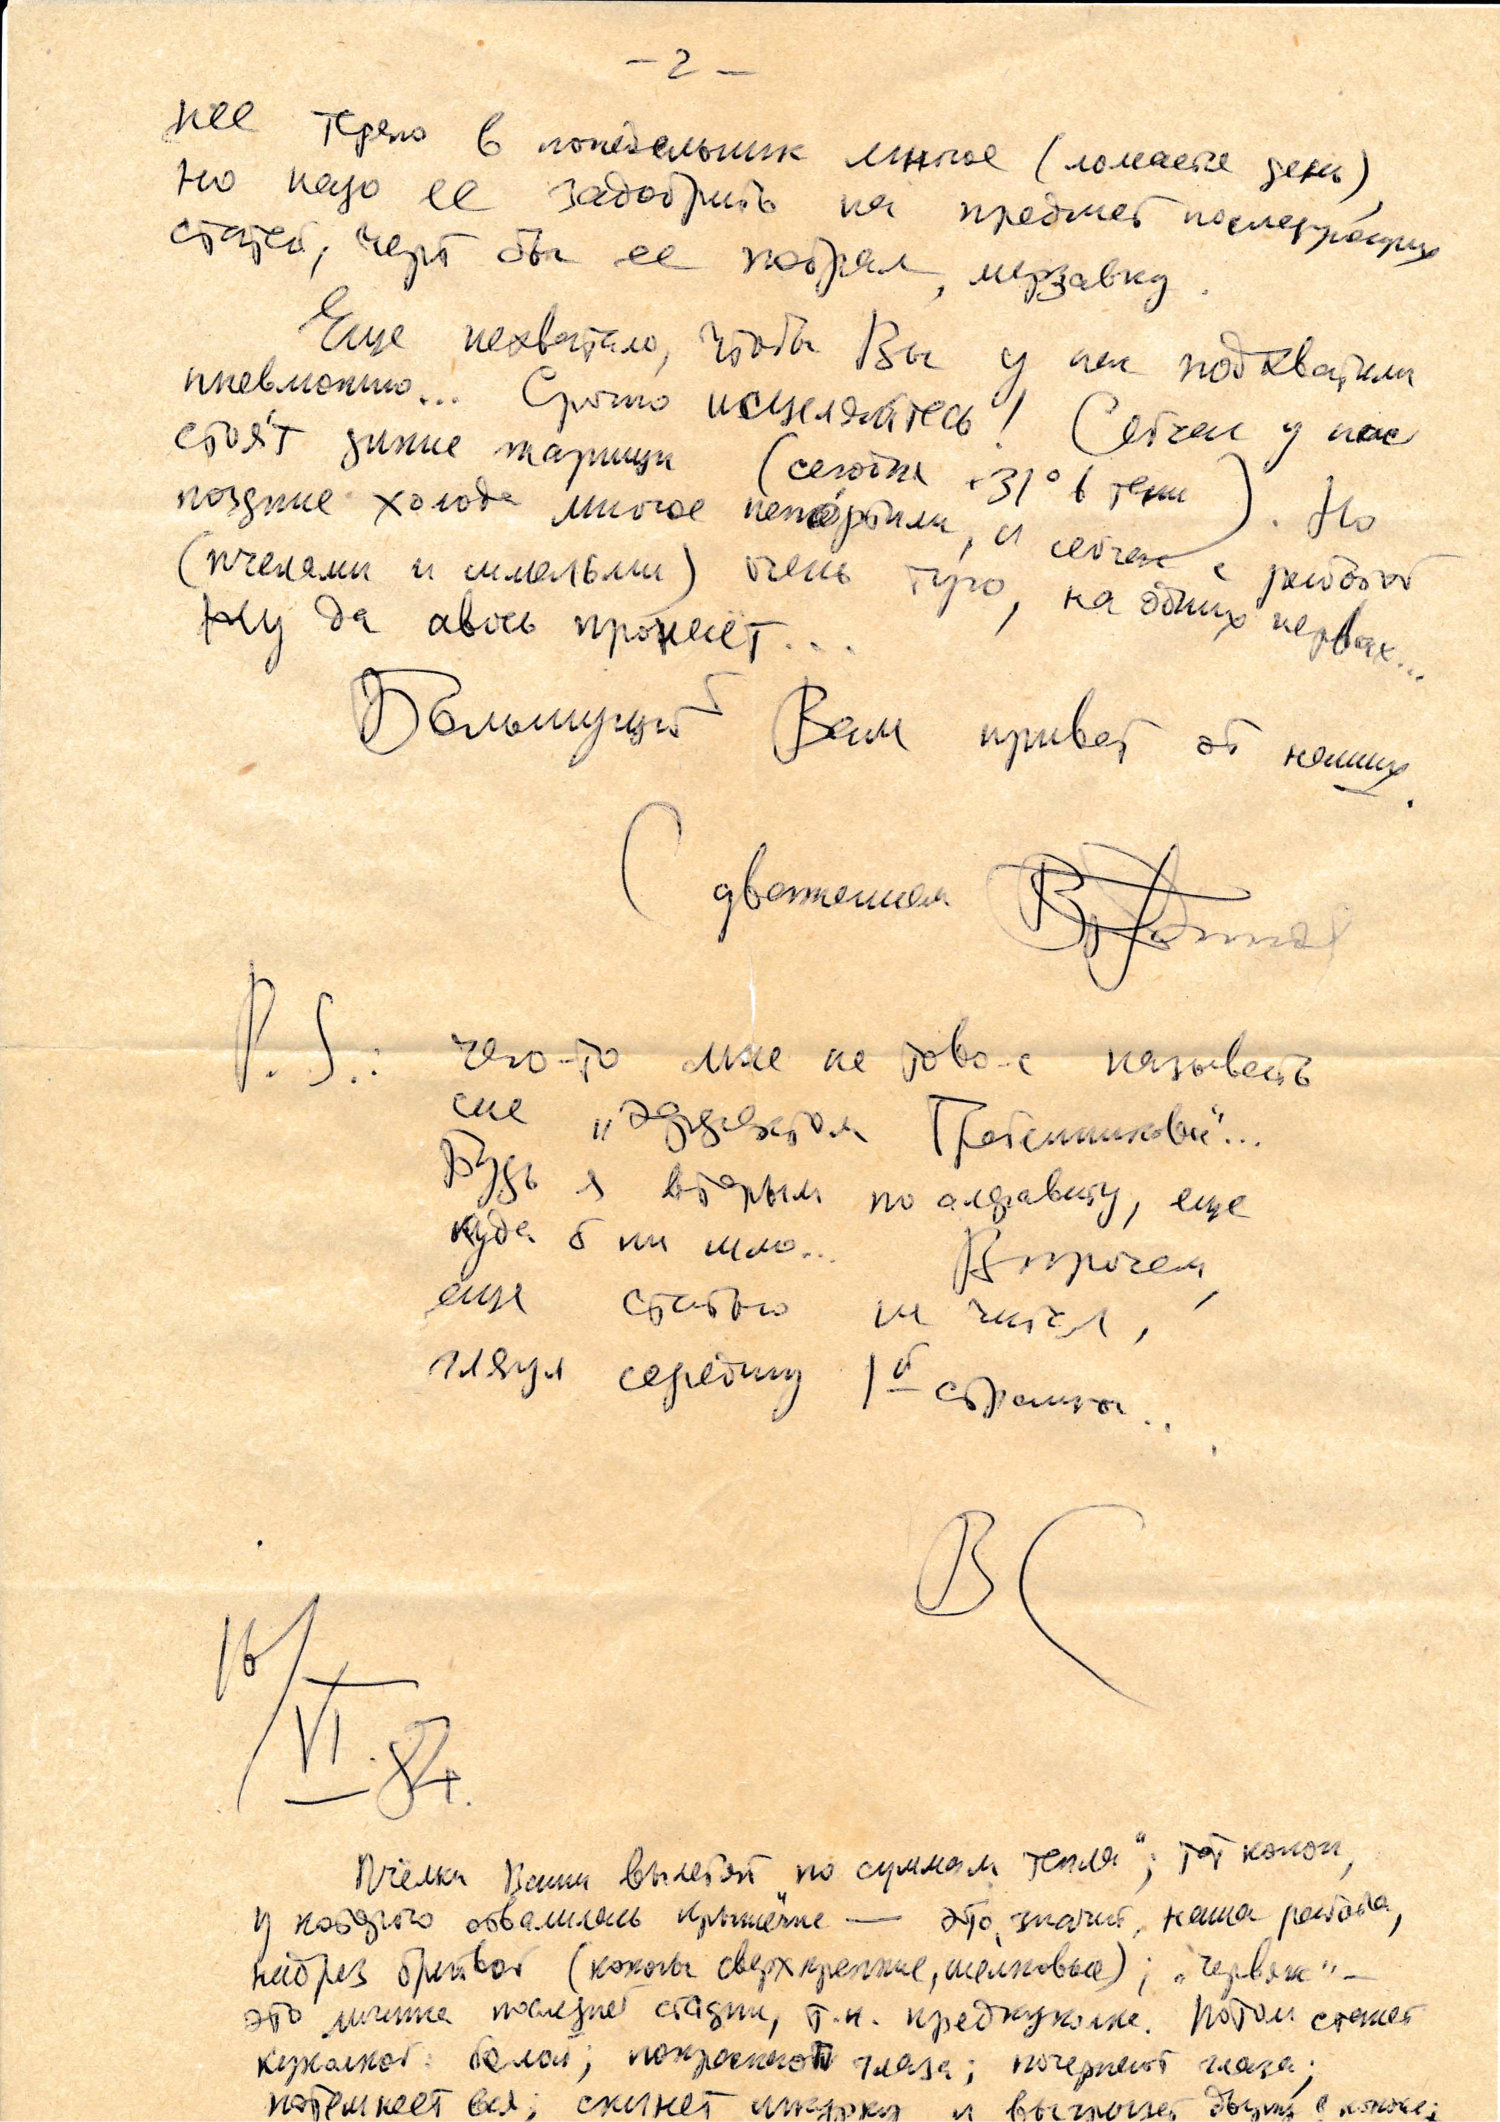 – 2 –
нее теряю в понедельник многое (ломается день),
но надо ее задобрить на предмет последующих
статей, черт бы ее побрал, мерзавку.
Еще нехватало, чтобы Вы у нас подхватили
пневмонию... Срочно исцеляйтесь! Сейчас у нас
стоят дикие жарищи (сегодня +31° в тени). Но
поздние холода многое испортили, и сейчас с работой
(пчелами и шмелями) очень туго, на одних нервах...
Ну да авось пронесёт...
Большущий Вам привет от наших.
С уважением
P.S.: чего-то мне не тово-с называть
сие "эффектом Гребенникова"...
Будь я вторым по алфавиту, еще
куда б ни шло... Впрочем,
еще статью не читал,
глянул середину 1й страницы...
ВС
16/VI.84.
Пчёлки Ваши вылетят по "суммам тепла"; тот кокон,
у которого отвалилась крышечка — это, значит, наша работа,
надрез бритвой (коконы сверхкрепкие, шелковые); "червяк" –
это личинка последней стадии, т.н. предкуколка. Потом станет
куколкой: белой; покраснеют глаза; почернеют глаза;
потемнеет вся; скинет шкурку и в коконе;